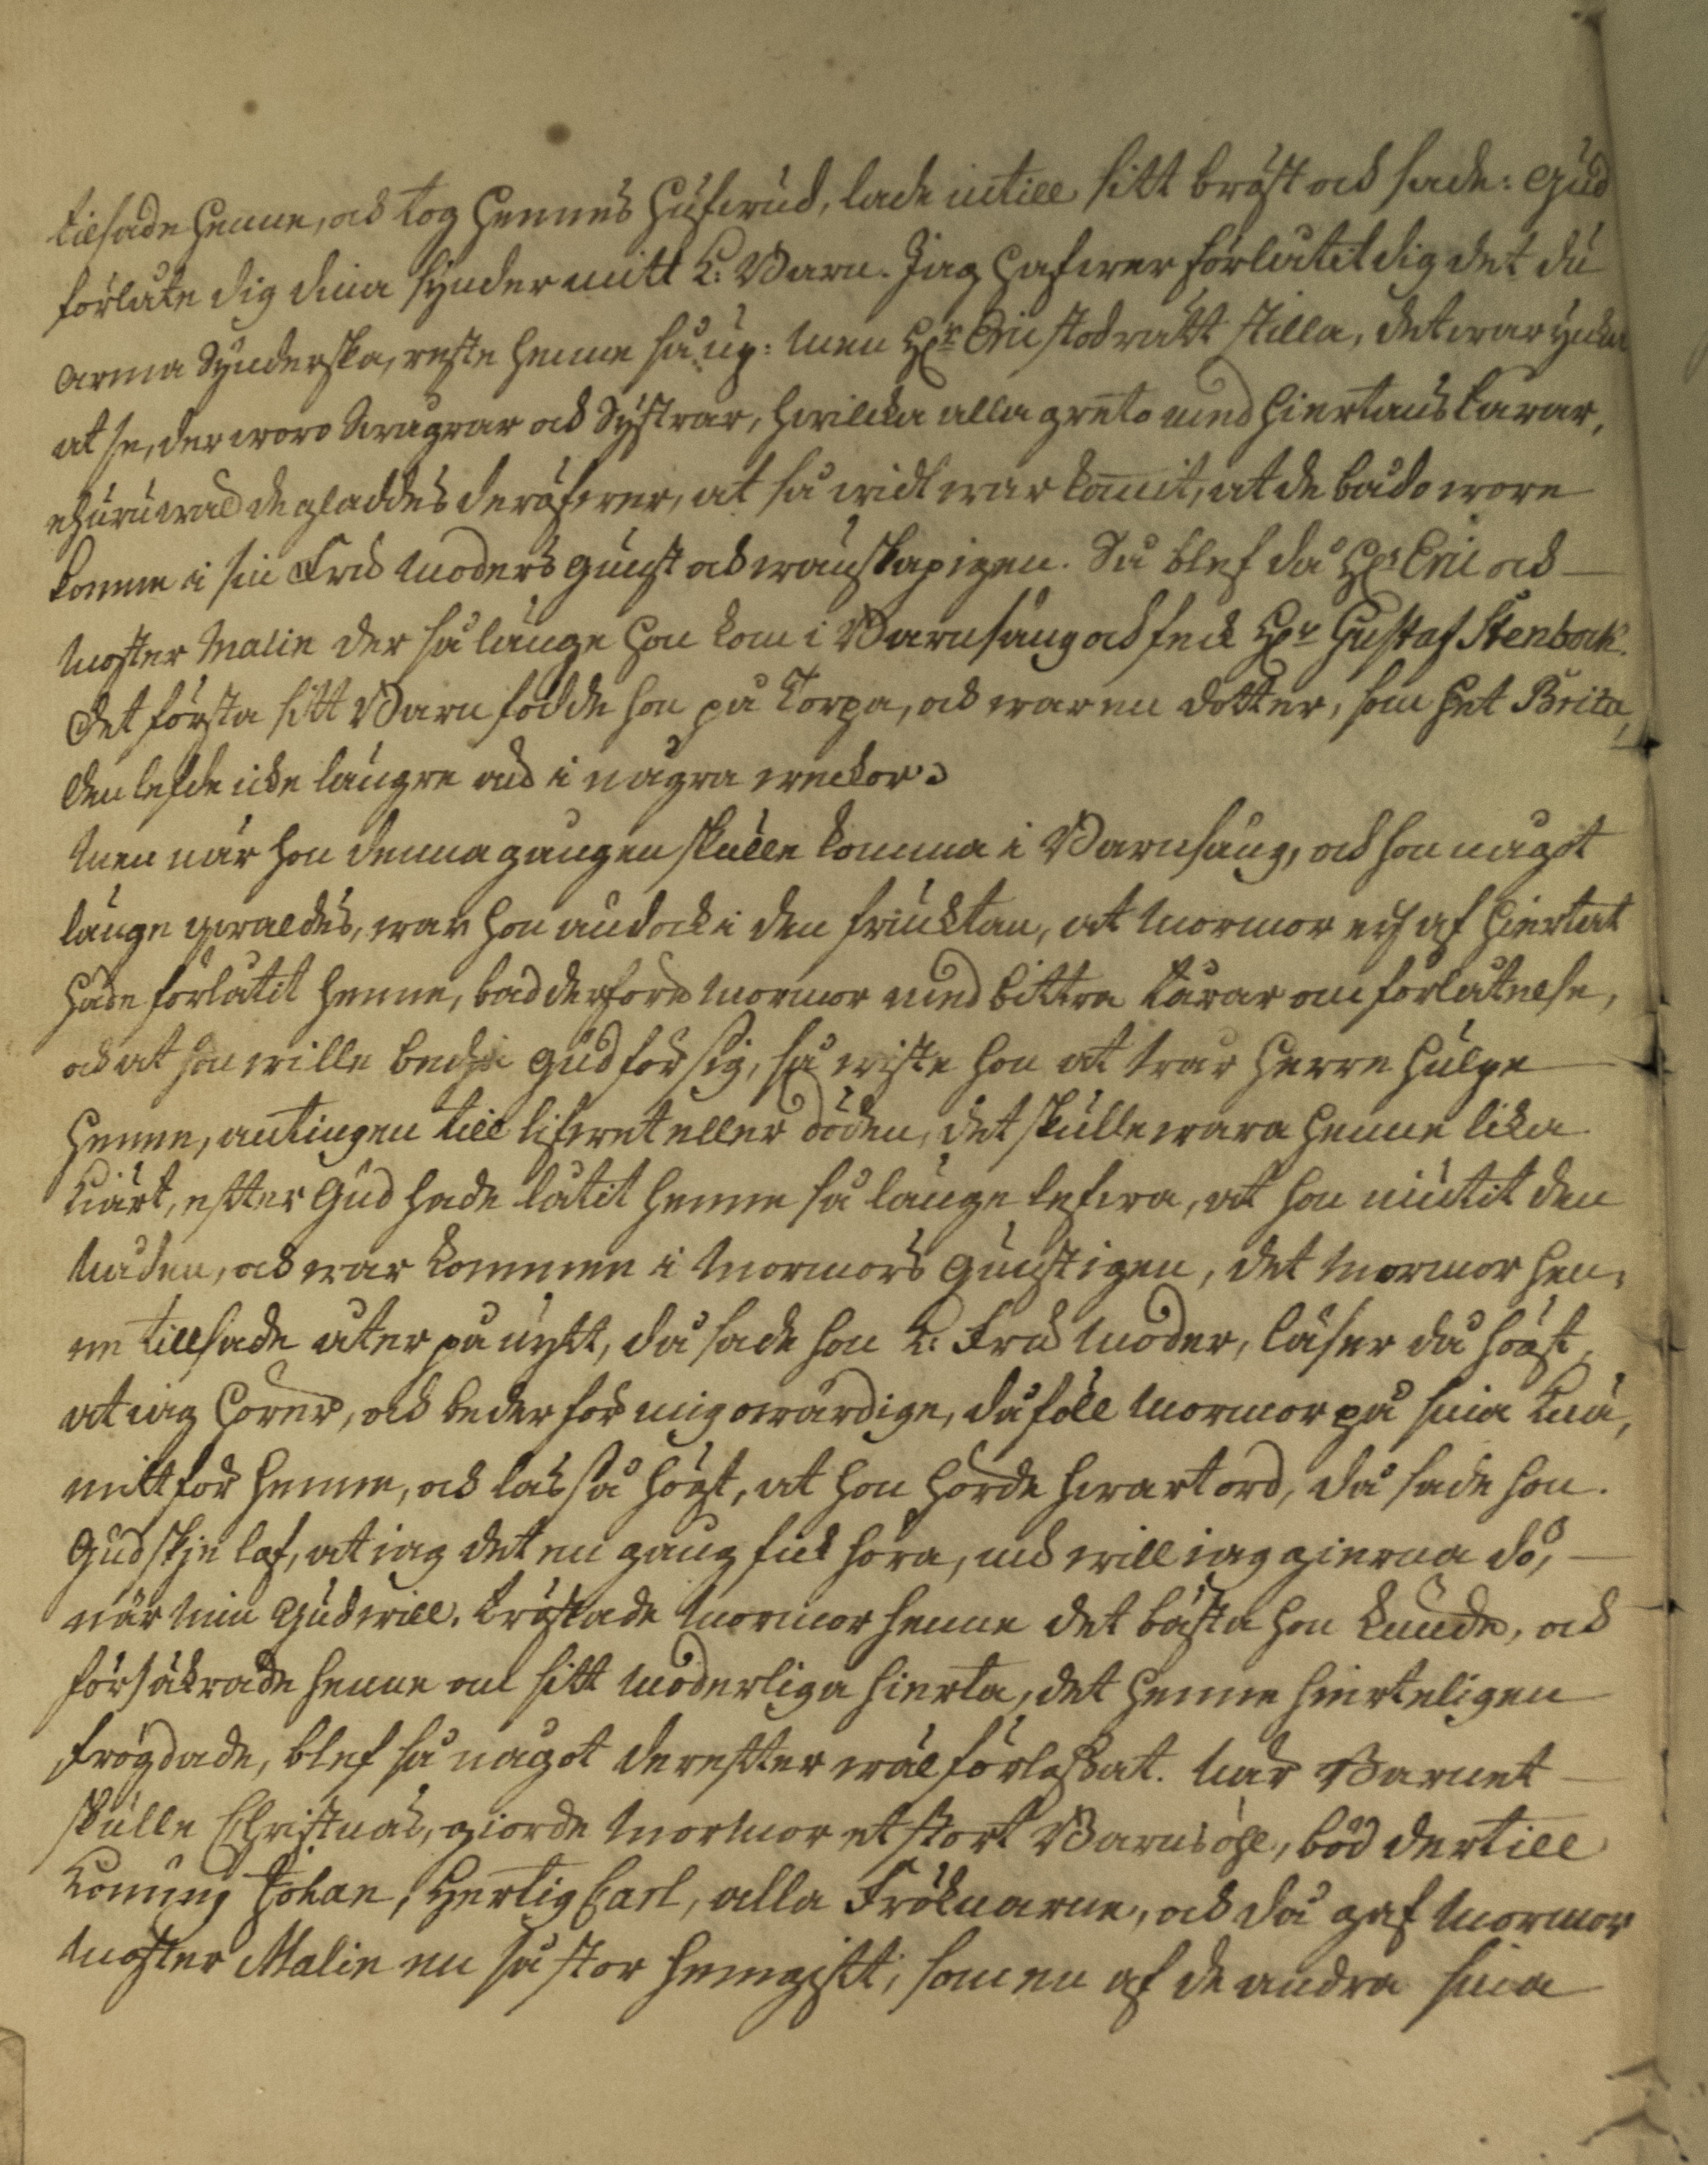 tilsade henne, ock tog hennes hufwud, lade intill sitt bröst ock sade: Gud
förlåte dig dina synder mitt K: Barn. Jag hafwer förlåtit dig det du
arma Synderska, reste henne så up: men Hr Eric stod rätt stilla, det war ynka
at se, der woro Swågrar ock Systrar, hwilcka alla greto med hiertans tårar,
ehuruwäl de gladdes deröfwer, at så widt war komit, at de både wore
komne i sin Fru Moders gunst ock wänskap igen. Så blef då Hr Eric ock
Moster Malin der så länge hon kom i Barnsäng ock feck Hr Gustaf Stenbock.
Det första sitt Barn födde hon på Torpa, ock war en dotter, som het Brita,
den lefde icke längre änd i några weckor.
Men när hon denna gången skulle komma i Barnsäng, ock hon något
länge qwaldes, war hon ändock i den fruchtan, at Mormor ej af hiertat
hade förlåtit henne, bad derföre Mormor med bittra tårar om förlåtelse,
ock at hon wille bedja Gud för sig, så wiste hon at wår Herre hulpe
henne, antingen till lifwet eller döden, det skulle wara henne lika
kiärt, efter Gud hade låtit henne så länge lefwa, at hon niutit den
nåden, ock war kommen i Mormors gunst igen, det Mormor hen-
ne tillsade åter på nytt, då sade hon K: Fru Moder, läser då högt,
at iag hörer, ock beder för mig owärdige, då föll Mormor på sina knä,
mitt för henne, ock läs så högt, at hon hörde hwart ord, då sade hon.
Gud skje lof, at iag det en gång fick höra, nu will iag gierna dö,
när min Gud will. Tröstade Mormor henne det bästa hon kunde, ock
försäkrade henne om sitt moderliga hierta, det henne hierteligen
frögdade, blef så något derefter wäl förlossat. När Barnet
skulle Christnas, giorde Mormor et stort Barnsöhl, böd dertill
Konung Johan, Hertig Carl, alla Fröknarne, ock då gaf Mormor
Moster Malin en så stor hemgift, som en af de andra sina